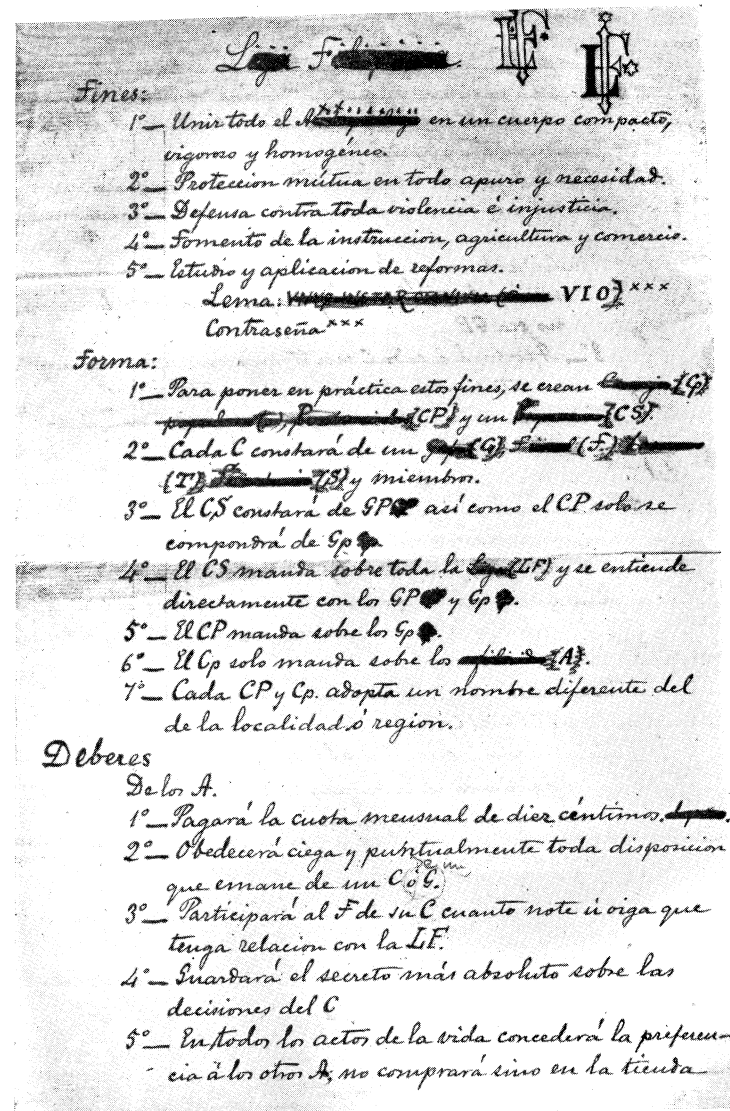 Liga Filipina LF LF
Fines:
1º— Unir todo el A en un cuerpo compacto,
vigoroso y homogéneo.
2º— Proteccion mútua en todo apuro y necesidad.
3º— Defensa contra toda violencia é injusticia.
4º— Fomento de la instruccion, agricultura y comercio.
5º— Estudio y aplicacion de reformas.
Lema: VIO] xxx
Contraseña xxx
Forma:
1º— Para poner en práctica estos fines, se crean (Cp)
(CP) y un (CS).
2º— Cada C constará de un (G) (F.)
(T) (S) y miembros.
3º— El CS constará de GP así como el CP solo se
compondrá de Gp
4º— El CS manda sobre toda la Liga (LF) y se entiende
directamente con los GP y Gp .
5º— El CP manda sobre los Gp .
6º— El Cp solo manda sobre los (A).
7º— Cada CP y Cp. adopta un nombre diferente del
de la localidad ó region.
Deberes
De los A.
1º— Pagará la cuota mensual de diez céntimos .
2º— Obedecerá ciega y puntualmente toda disposicion
que emane de un C ó G.
3º— Participará al F de su C cuanto note ú oiga que
tenga relacion con la LF.
4º— Guardará el secreto más absoluto sobre las
decisiones del C
5º— En todos los actos de la vida concederá la preferen-
cia á los otros A; no comprará sino en la tienda